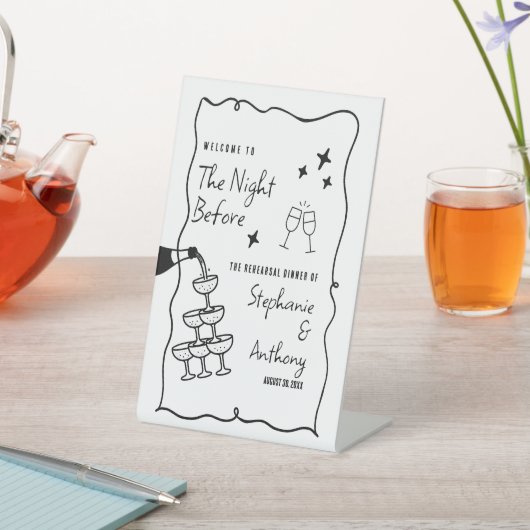 WELCOME TO
The Night
Before
THE REHEARSAL DINNER OF
Stephanie
&
Anthony
AUGUST 30, 20XX